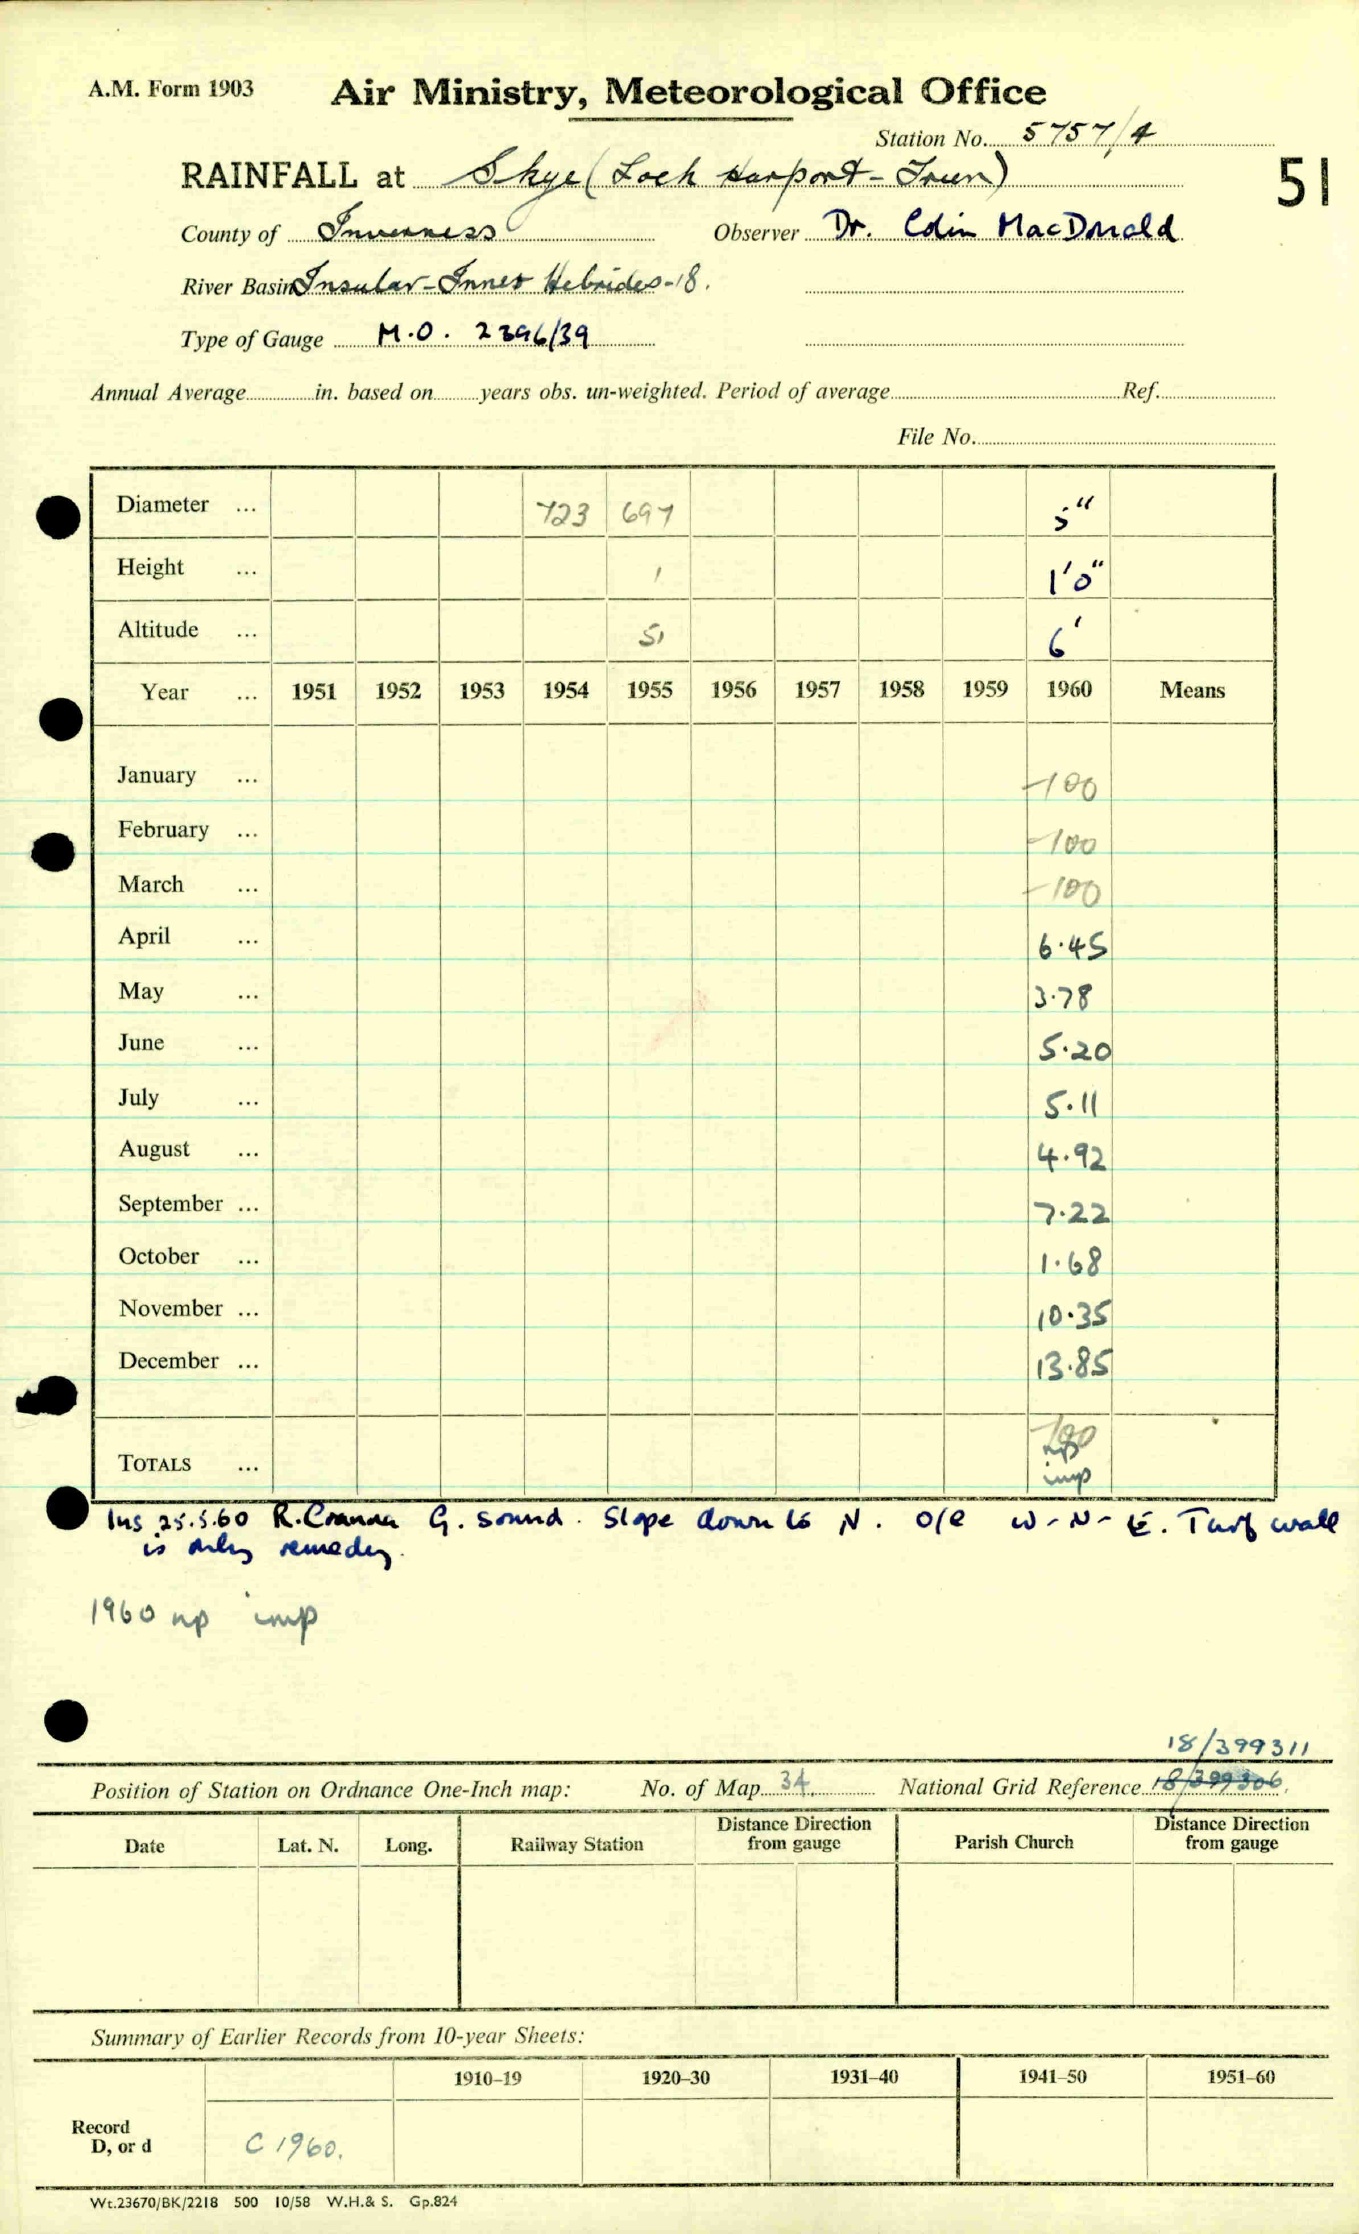 A.M. Form 1903 Air Ministry, Meteorological Office
Station No. 5757/4
RAINFALL at Skye (Loch Harport - Drynoch)
51
County of Inverness Observer Dr. Colin MacDonald
River Basin Insular - Inner Hebrides - 18.
Type of Gauge M.O. 2396/39
Annual Average in. based on years obs. un-weighted. Period of average Ref.
File No.
Diameter ... 723 697 5"
Height ... 1 1'0"
Altitude ... 51 6'
Year ... 1951 1952 1953 1954 1955 1956 1957 1958 1959 1960 Means
January ... -100
February ... -100
March ... -100
April ... 6.45
May ... 3.78
June ... 5.20
July ... 5.11
August ... 4.92
September ... 7.22
October ... 1.68
November ... 10.35
December ... 13.85
-100
TOTALS ... np
imp
Ins 25.5.60 R. G. sound. Slope down to N. o/e W-N-E. Turf wall
is only remedy.
1960 np imp
18/399311
Position of Station on Ordnance One-Inch map: No. of Map 34. National Grid Reference 18/399306.
Date Lat. N. Long. Railway Station Distance Direction from gauge Parish Church Distance Direction from gauge
Summary of Earlier Records from 10-year Sheets:
1910–19 1920–30 1931–40 1941–50 1951–60
Record
D, or d C 1960.
Wt.23670/BK/2218 500 10/58 W.H.& S. Gp.824